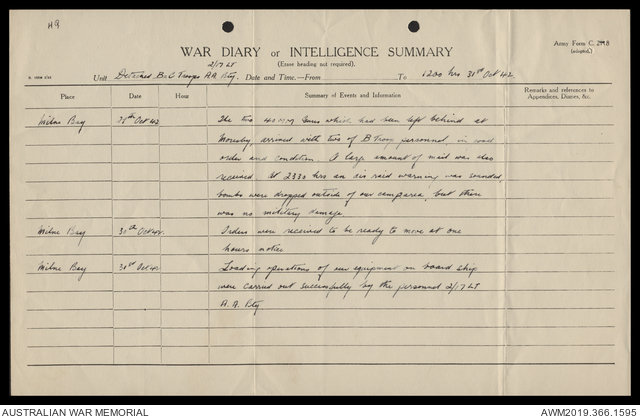 H9
Army Form C. 2118
(adapted.)
WAR DIARY or INTELLIGENCE SUMMARY
(Erase heading not required).
2/17 LT
Unit Detained B & C Troops A.A. Bty. Date and Time.—From To 1200 hrs 31st Oct 42
Place Date Hour Summary of Events and Information Remarks and references to Appendices, Diaries, &c.
Milne Bay 29th Oct 42 The two 40 MM Guns which had been left behind at
Moresby arrived with two of B Troop personnel in good
order and condition. A large amount of mail was also
received. At 2330 hrs an air raid warning was sounded,
bombs were dropped outside of our camp area, but there
was no military damage.
Milne Bay 30th Oct 42 Orders were received to be ready to move at one
hours notice
Milne Bay 31st Oct 42 Loading operations of our equipment on board ship
were carried out successfully by the personnel 2/17 LT
A.A. Bty
AUSTRALIAN WAR MEMORIAL
AWM2019.366.1595